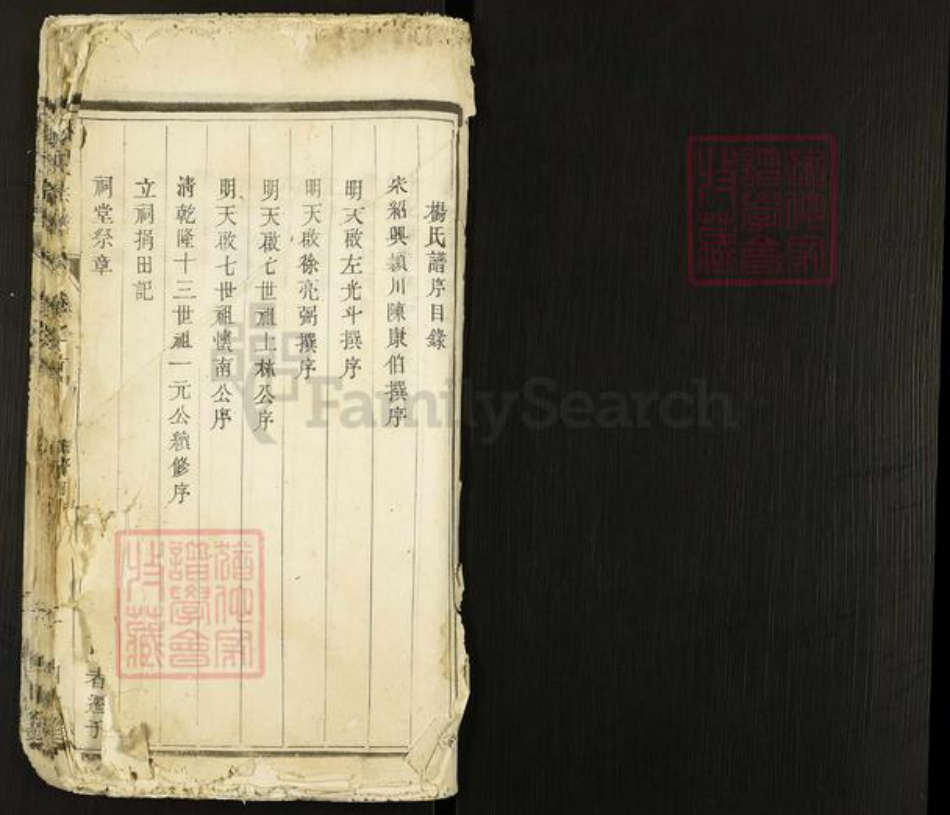 楊氏譜序目錄
宋紹興潁川陳康伯撰序
明天啟左光斗撰序
明天啟徐亮弼撰序
明天啟七世祖上林公序
明天啟七世祖懷南公序
清乾隆十三世祖一元公續修序
立祠捐田記
祠堂祭章
FamilySearch
譜學會
收藏
譜學會
收藏